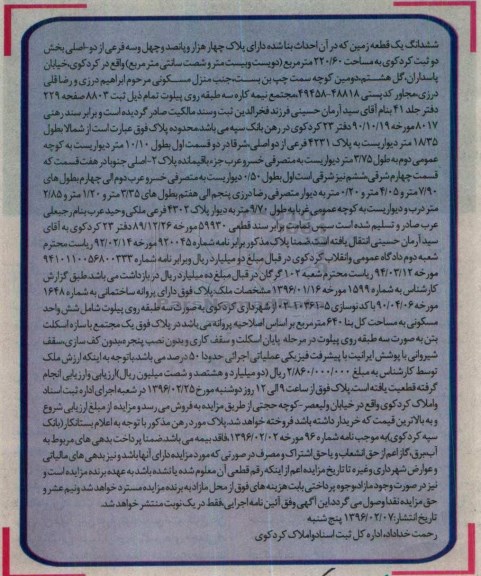 ششدانگ یک قطعه زمین که در آن احداث بنا شده دارای پلاک چهار هزار و پانصد و چهل وسه فرعی از دو-اصلی بخش
دو ثبت کردکوی به مساحت ۲۲۰/۶۰ متر مربع (دویست و بیست متر و شصت سانتی متر مربع) واقع در کردکوی،خیابان
پاسداران،گل هشتم،دومین کوچه سمت چپ بن بست،جنب منزل مسکونی مرحوم ابراهیم درزی و رضا قلی
درزی،مجاور کدپستی ۴۸۸۱۸-۴۹۴۵۸،مجتمع نیمه کاره سه طبقه روی پیلوت تمام ذیل ثبت ۸۸۰۳ صفحه ۲۲۹
دفتر جلد ۴۱ بنام آقای سید آرمان حسینی فرزند فخرالدین ثبت وسند مالکیت صادر گردیده است و برابر سند رهنی
۸۰۱۷ مورخه ۹۰/۱۰/۱۹ دفتر ۲۳ کردکوی در رهن بانک سپه می باشد،محدوده پلاک فوق عبارت است از شمالا بطول
۱۸/۳۵ متر دیواریست به پلاک ۴۲۳۱ فرعی از دو اصلی،شرقا در دو قسمت اول بطول ۱۰/۱۰ متر دیواریست به کوچه
عمومی دوم به طول ۳/۷۵ متر دیواریست به متصرفی خسرو عرب جزء باقیمانده پلاک ۲-اصلی جنوبا در هفت قسمت که
قسمت چهارم شرقی،ششم نیز شرقی است اول بطول ۰/۵۰ دیواریست به متصرفی خسرو عرب دوم الی چهارم بطول های
۷/۹۰ متر و ۴/۰۵ متر و ۰/۲۰ متر به دیوار متصرفی رضا درزی پنجم الی هفتم بطول های ۳/۳۵ متر و ۱/۲۰ متر و ۲/۸۵
متر درب و دیواریست به کوچه عمومی غربا به طول ۹/۷۰ متر به دیوار پلاک ۴۳۰۲ فرعی ملکی وحید عرب بنام رجبعلی
عرب صادر و تسلیم شده است سپس تمامت برابر سند قطعی ۵۹۹۳۰ مورخه ۸۹/۱۲/۲۶ دفتر ۲۳ کردکوی به آقای
سید آرمان حسینی انتقال یافته است،ضمنا پلاک مذکور برابر نامه شماره ۹۲۰۰۴۵ مورخه ۹۲/۰۲/۱۴ ریاست محترم
شعبه دوم دادگاه عمومی وانقلاب کردکوی در قبال مبلغ دو میلیارد ریال وبرابر نامه شماره ۹۴۱۰۱۱۰۰۵۶۸۰۰۳۳۳
مورخه ۹۴/۰۳/۱۲ ریاست محترم شعبه ۱۰۲ گرگان در قبال مبلغ ده میلیارد ریال در بازداشت می باشد،طبق گزارش
کارشناس به شماره ۱۵۹۹ مورخه ۱۳۹۶/۰۱/۱۶ مشخصات ملک پلاک فوق دارای پروانه ساختمانی به شماره ۱۶۴۸
مورخه ۹۰/۰۴/۰۶ با کد نوسازی ۵-۱۰۳۶۱-۰۳ از شهرداری کردکوی به صورت سه طبقه روی پیلوت شامل شش واحد
مسکونی به مساحت کل بنا ۶۴۰ متر مربع بر اساس اصلاحیه پروانه می باشد،در پلاک فوق یک مجتمع با سازه اسکلت
بتن به صورت سه طبقه روی پیلوت در مرحله پایان اسکلت و سقف کاری و بدون نصب پنجره،بدون کف سازی،سقف
شیروانی با پوشش ایرانیت با پیشرفت فیزیکی عملیاتی اجرائی حدودا ۵۰ درصد می باشد،با توجه به اینکه ارزش ملک
توسط کارشناس به مبلغ ۲/۸۶۰/۰۰۰/۰۰۰ ریال (دو میلیارد و هشتصد و شصت میلیون ریال)ارزیابی وارزیابی انجام
گرفته قطعیت یافته است،پلاک فوق از ساعت ۹ الی ۱۲ روز دوشنبه مورخ ۱۳۹۶/۰۲/۲۵ در شعبه اجرای اداره ثبت اسناد
واملاک کردکوی واقع در خیابان ولیعصر-کوچه حجتی از طریق مزایده به فروش می رسد و مزایده از مبلغ ارزیابی شروع
و به بالاترین قیمت که خریدار داشته باشد فروخته خواهد شد،پلاک مورد رهن مذکور با توجه به اعلام بستانکار (بانک
سپه کردکوی)به موجب نامه شماره ۹۶ مورخه ۱۳۹۶/۰۲/۰۲ فاقد بیمه می باشد،ضمنا پرداخت بدهی های مربوط به
آب،برق،گاز اعم از حق انشعاب و یا حق اشتراک و مصرف در صورتی که مورد مزایده دارای آنها باشد و نیز بدهی های مالیاتی
و عوارض شهرداری و غیره تا تاریخ مزایده اعم از اینکه رقم قطعی آن معلوم شده یا نشده باشد به عهده برنده مزایده است و
نیز در صورت وجود مازاد وجوه پرداختی بابت هزینه های فوق از محل مازاد به برنده مزایده مسترد خواهد شد ونیم عشر و
حق مزایده نقدا وصول می گردد،این آگهی وفق آئین نامه اجرایی،فقط در یک نوبت منتشر خواهد شد.
تاریخ انتشار:۱۳۹۶/۰۲/۰۷ پنج شنبه
رحمت خداداد،اداره کل ثبت اسناد واملاک کردکوی